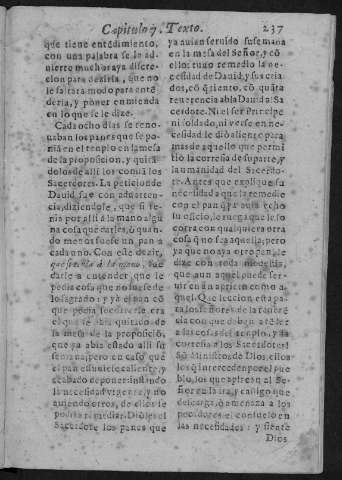 Capitulo 7. Texto. 237
que tiene entẽdimiento,
con una palabra se le ad-
vierte mucho: aya discre-
cion para dezirla, que no
le faltara modo para entẽ-
derla, y poner enmienda
en lo que se le dize.
Cada ocho dias se reno-
uaban los panes que se po-
niã en el templo en la mesa
de la proposicion, y quitã-
dolos de alli los comiã los
Sacerdotes. La peticion de
Dauid fue con aduerten-
cia, diziendole, que si te-
nia por alli à la mano algu-
na cosa que darles, ò quan-
do menos fuesse un pan a
cada uno. Con este dezir,
darle a entender, que le
pedia cosa que no fuesse de
lo sagrado: y ya el pan cõ
que podia socorrerle era
el que se abia quitado de
la mesa de la proposiciõ,
que ya abia estado alli su
semana, pero en caso que
el pan estuuiesse caliente, y
acabado de poner instando
la necessidad urgente, y no
auiendo otros, de ellos le
podia remediar. Diòle el
Sacerdote los panes que
ya auian seruido su semana
en la mesa del Señor, y cõ
ello: tuuo remedio la ne-
cessidad de Dauid, y sus cria
dos, cõ q̃ iento, cõ quãta
reuerencia abla Dauid al Sa
cerdote. Ni el ser Principe
ni soldado, ni verse en ne-
cessidad le diò aliento para
mas de aquello que permi
tiò la cortesia de su parte, y
la umanidad del Sacerdo-
te. Antes que explique su
necessidad a que la remedie
con el pan q̃ ya auia echo
su oficio, le ruega que le so
corra con qualquiera otra
cosa q̃ no sea aquella, pero
ya que no aya otro pan, le
dize con toda modestia,
que aun aquel puede ser-
uir en un aprieto como a
quel. Que leccion esta pa-
ra los señores de la reueren
cia con que deben atẽder
a las cosas del templo, y la
cortesia a los Sacerdotes!
Sõ Ministros de Dios, ellos
los q̃ interceden por el pue
blo, los que aplacan al Se-
ñor en la ira, y castigo que
descarga, ò amenaza a los
pecadores el consuelo en
las necessidades: y siente
Dios